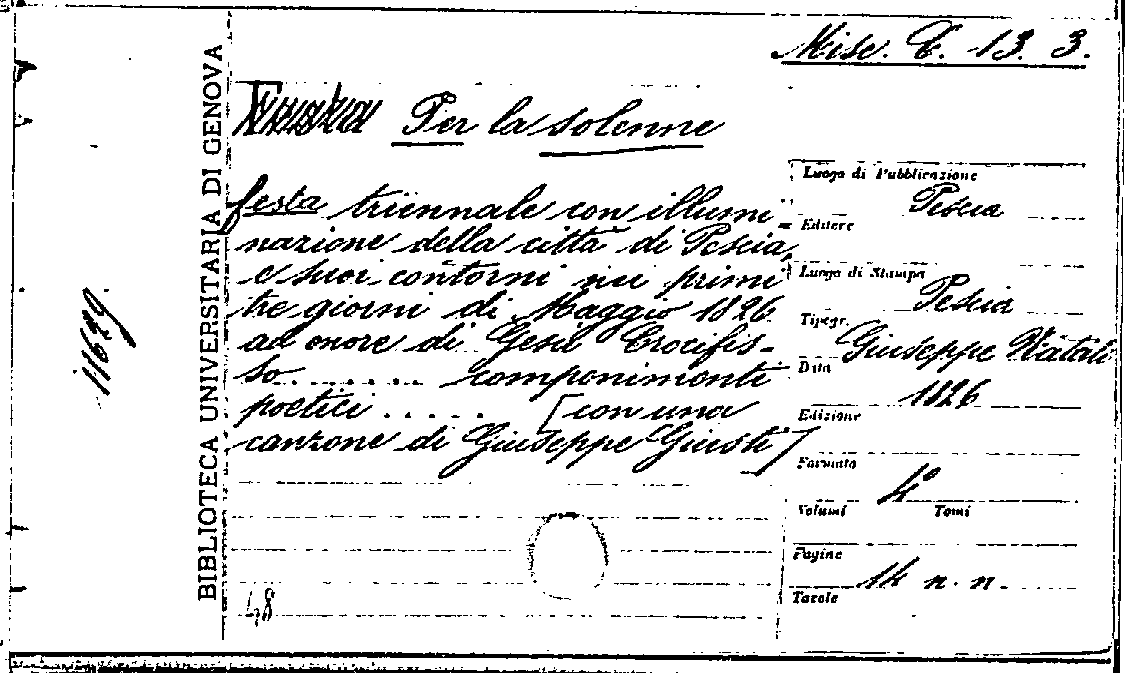 Misc. C. 13. 3.
BIBLIOTECA UNIVERSITARIA DI GENOVA
Per la solenne
festa triennale con illumi=
nazione della città di Pescia,
e suoi contorni nei primi
tre giorni di Maggio 1826
ad onore di Gesù Crocifis-
so ....... componimenti
poetici ..... [con una
canzone di Giuseppe Giusti]
48
Luogo di Pubblicazione
Pescia
Editore
Luogo di Stampa
Pescia
Tipogr.
Giuseppe Natali
Data
1826
Edizione
Formato
4°
Volumi Tomi
Pagine
14 n. n.
Tavole